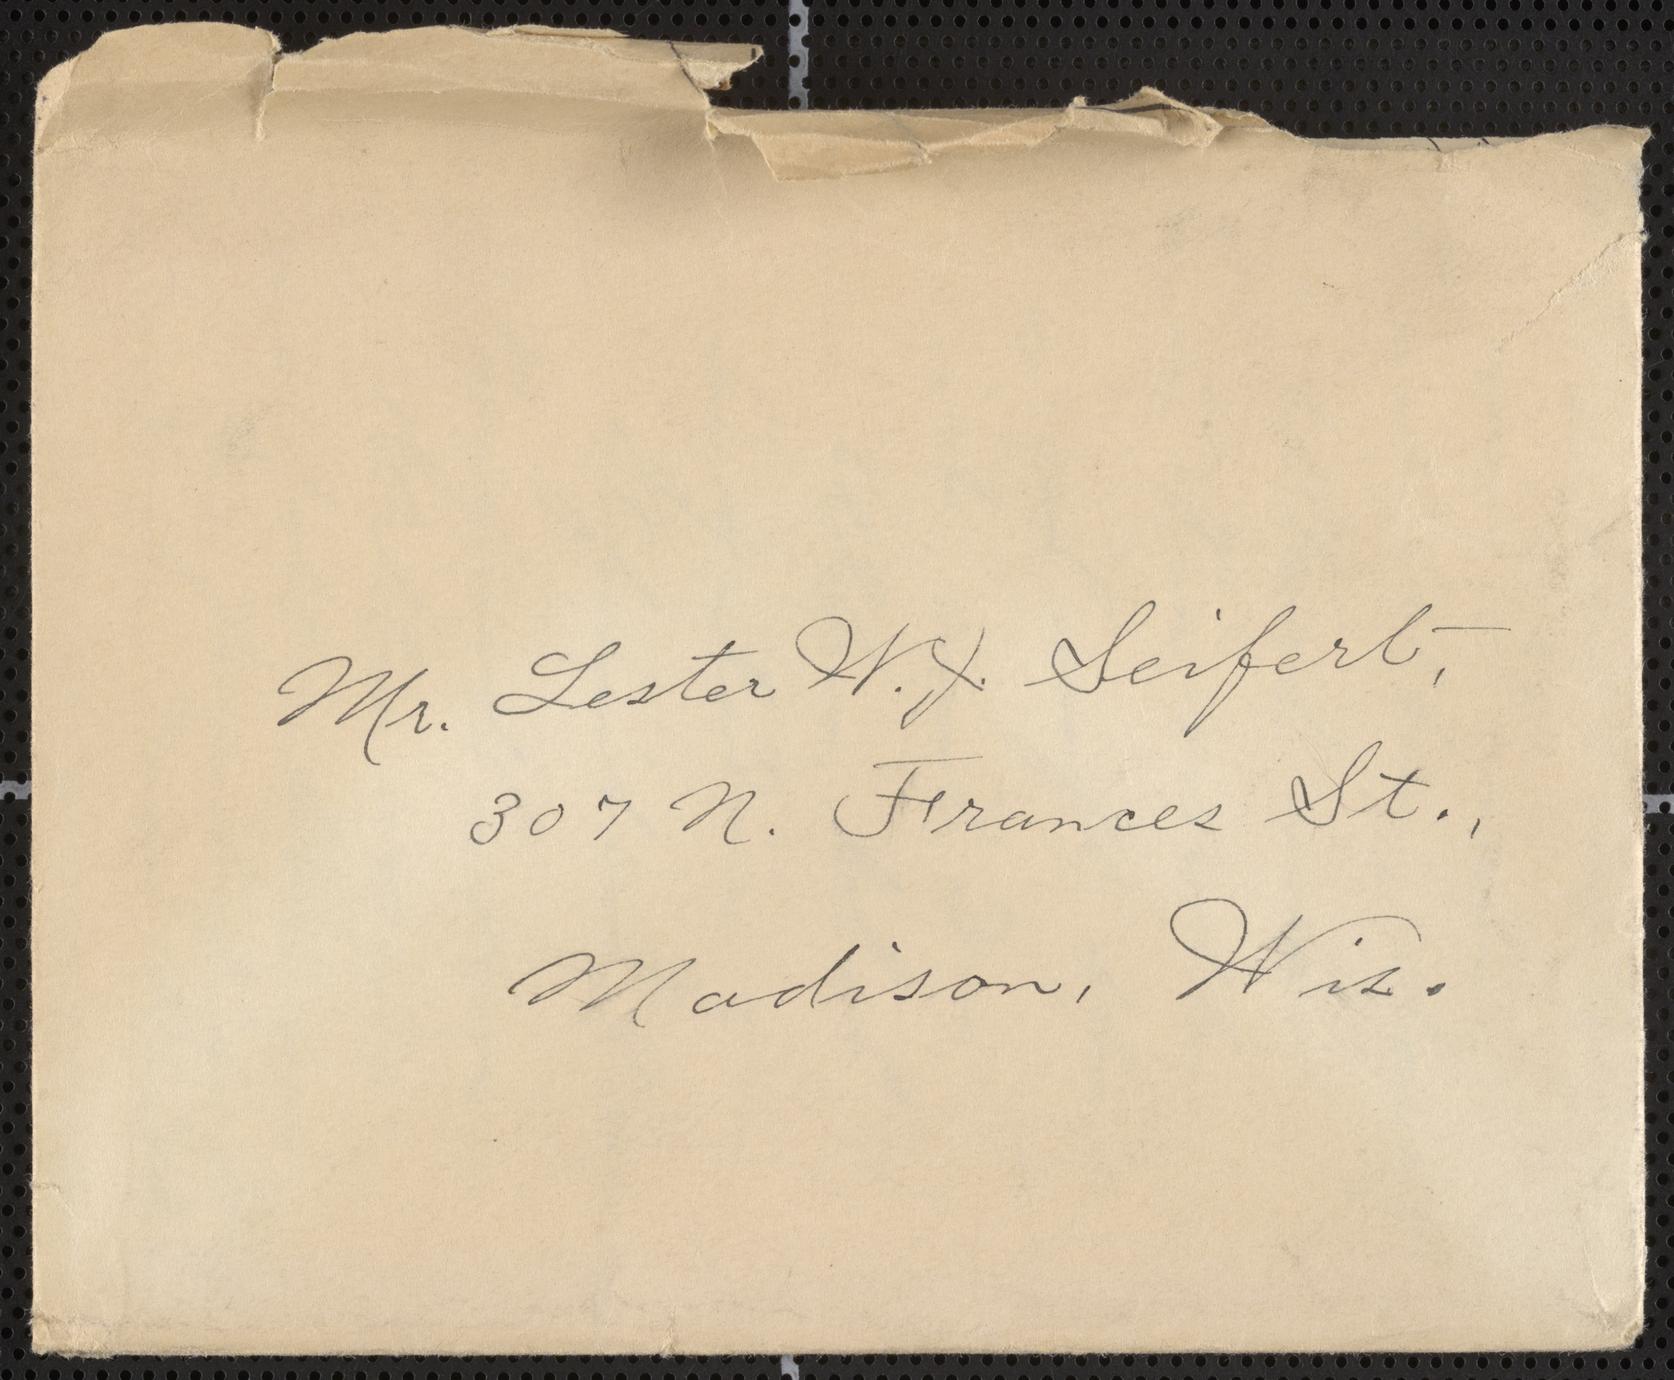 Mr. Lester W. J. Seifert,
307 N. Frances St.,
Madison, Wis.